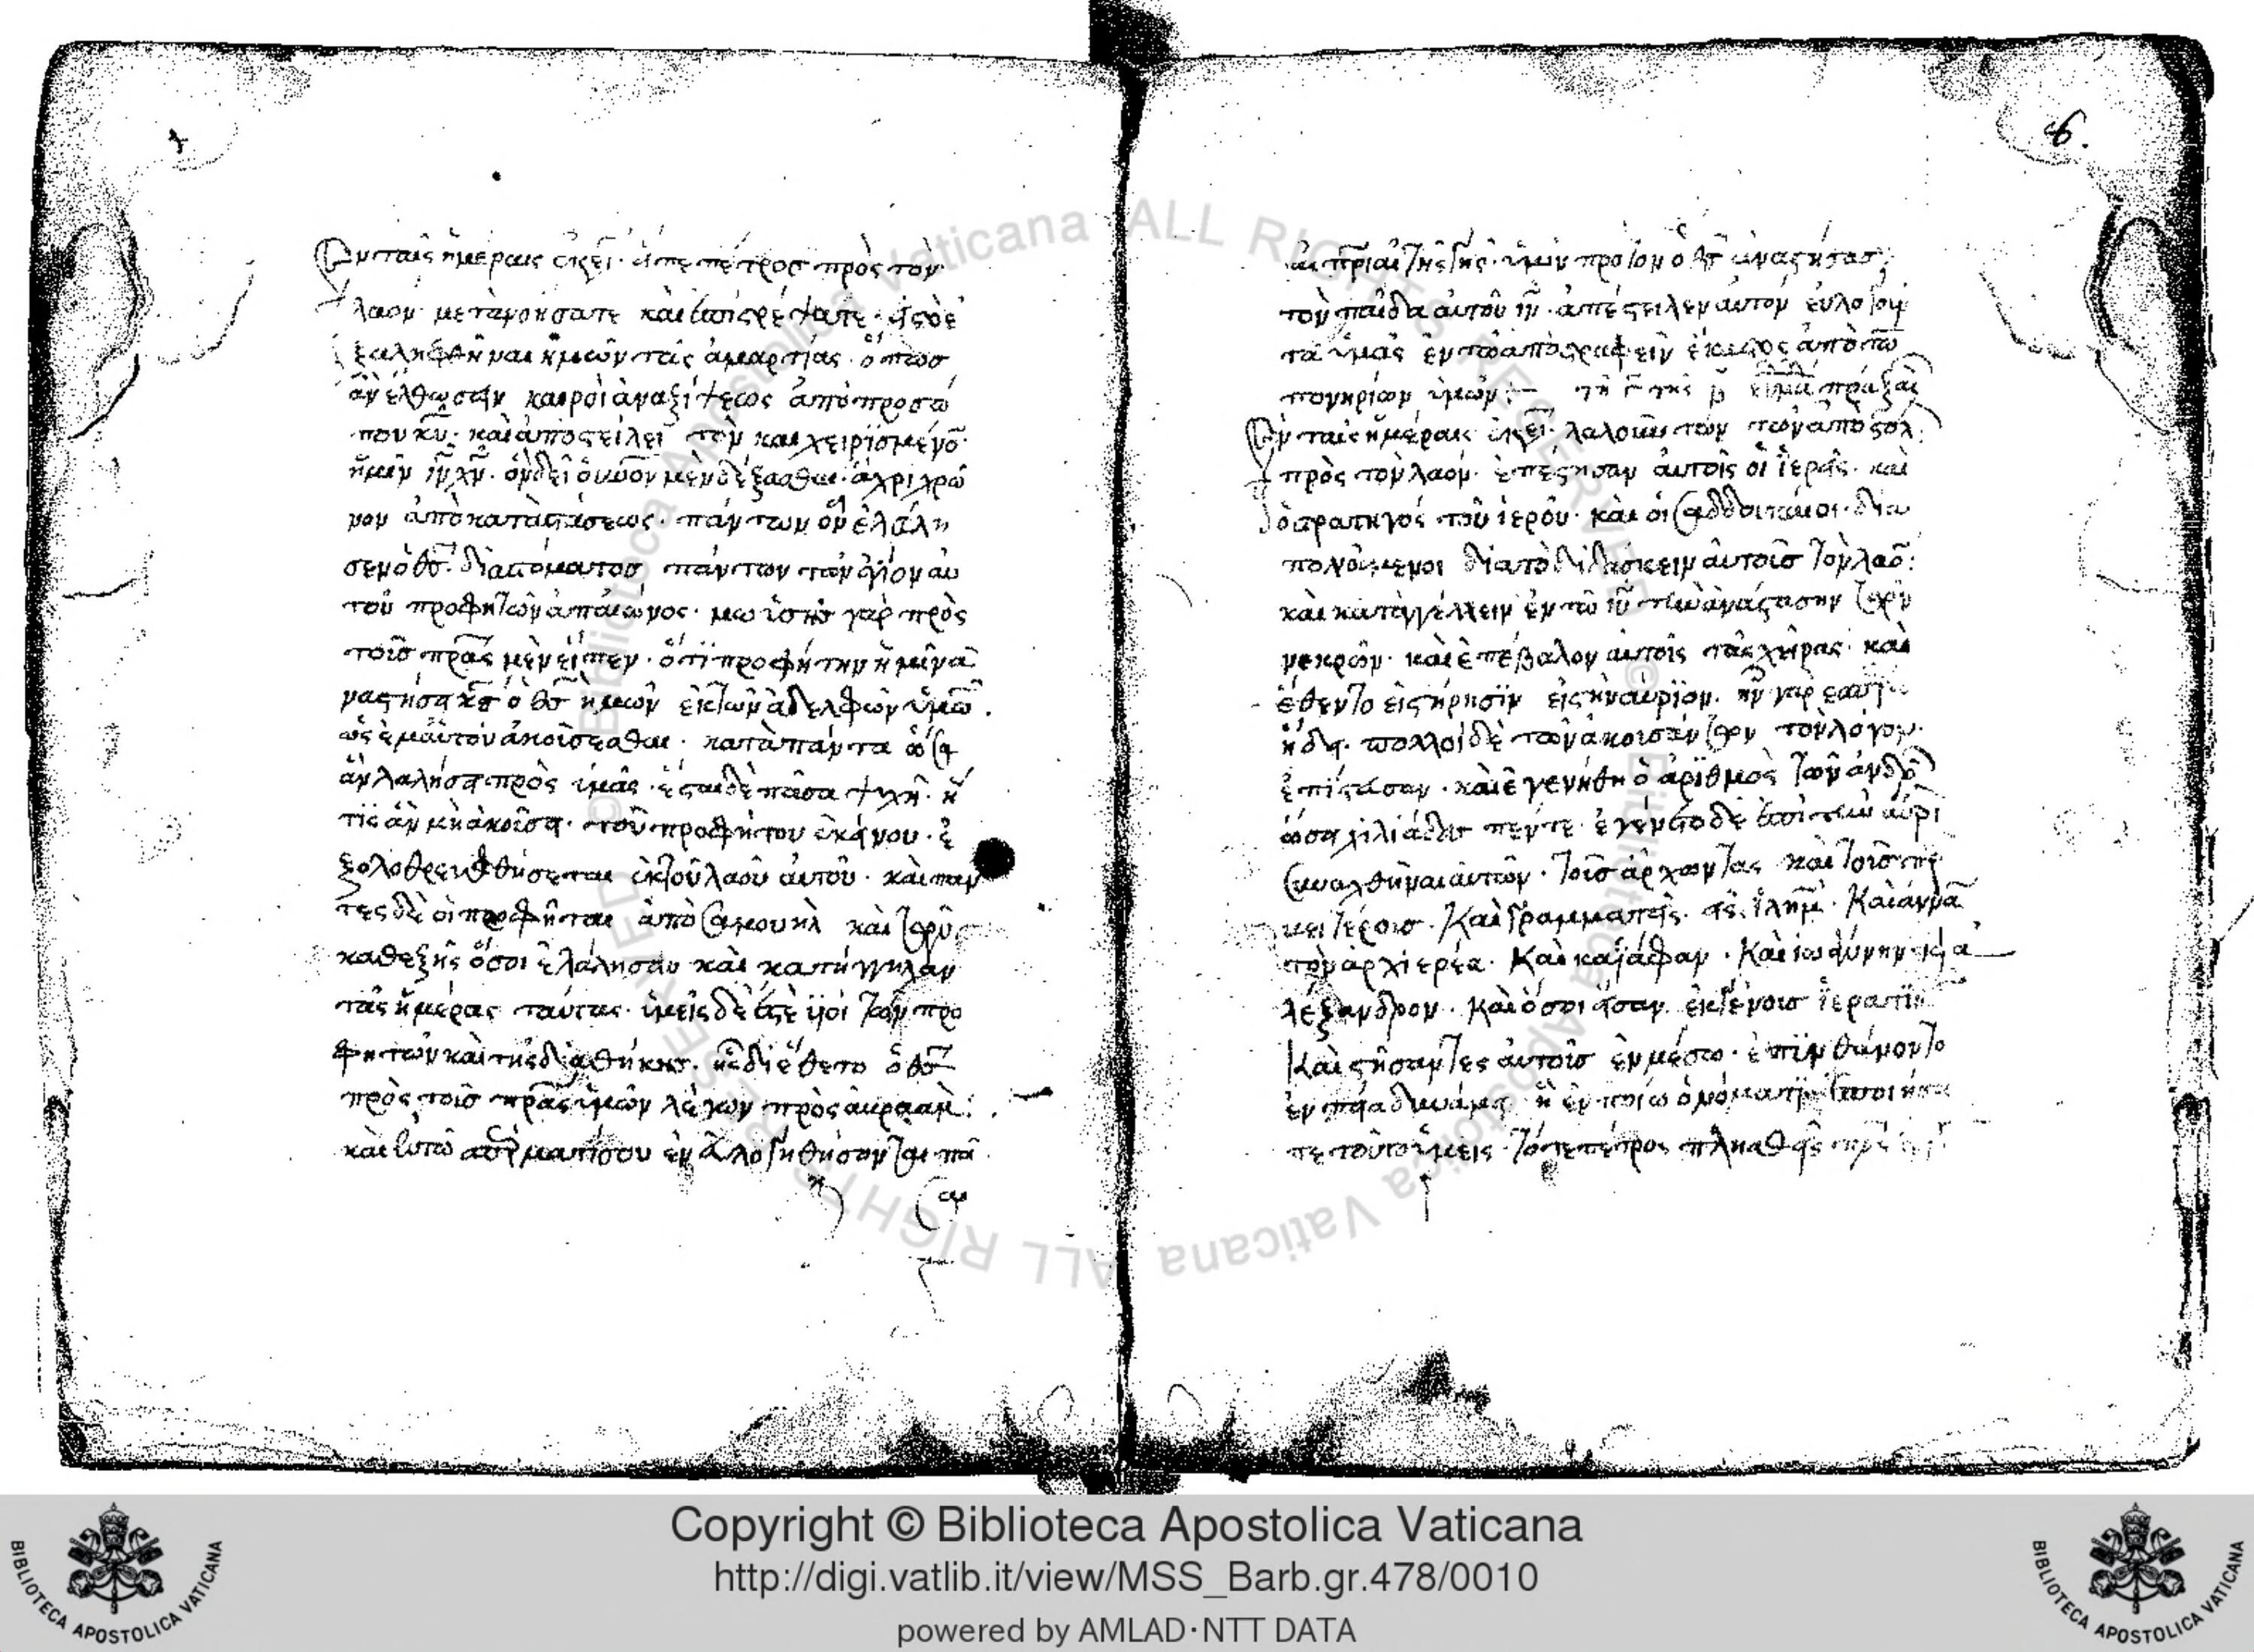 Ἐν ταῖς ἡμέραις ἐκεῖ· εἶπε πέτρος πρὸς τὸν
λαον· μετὰνοησατε και ἐπιςρέψατε· εἰς τὸ ἐ
ξαληφθῆναι ἡμῶν τὰς ἁμαρτίας· ὅπως
ἀν ἐλθωσϊν καιροὶ ἀναξύψεως ἀπὸ προσώ
που κ̅υ̅· καὶ ἀποςείλει τὸν και χειρϊσμένο̅
ἡμῖν ι̅ν̅ χ̅ν̅· ὁν δεῖ οὐνο̅ν μὲν δέξασθαι· ἀχρι χρό
νον ἀπὸκατὰστάσεως· πάντων ὁν ἐλάλη
σεν ὁ θ̅ς̅· διὰ στόματοσ πάντων τῶν ἁγίον αυ
τοῦ προφητῶν ἀπαιώνος· μωϊσῆσ γὰρ πρὸς
τοῖσ π̅ρ̅ας μὲν εἶπεν· ὅτϊ προφήτην ἡμῖν α
ναςήσει κ̅ς̅ ὁ θ̅ς̅ ἡμῶν ἐκ τῶν ἀδελφῶν ὑμῶ̅
ὡς ἐμαὐτόν ἀκοίσεσθαι· κατὰ πάντα ὅσα
ἀν λαλήσει πρὸς ὑμᾶς· ἔςαι δὲ πᾶσα ψυχὴ· ἥ
τϊς ἀν μὴ ἀκοῖσει· τοῦ προφήτου ἐκείνου· ἐ
ξολοθρευθήσεται ἐκ τοῦ λαοῦ αὐτοῦ· καὶ παν
τες δὲ οἱ προφῆται ἀπὸ σαμουὴλ καὶ τῶν
καθεξῆς ὅσοι ἐλάλησαν καὶ κατήγγειλαν
τὰς ἡμέρας ταύτας· ὑμεῖς δὲ ἐςὲ ὑϊοὶ τῶν προ
φητῶν καὶ τῆς διαθήκησ· ἧς διέθετο ὁ θ̅ς̅
πρὸς τοῖσ π̅ρ̅ας ὑμῶν λέγων πρὸς ἀβρααμ:
καὶ ἐν τῶ σπέρματϊ σου ἐνευλογηθήσονται πᾶ
σαι
αι π̅ρ̅ιαι τῆς γῆς· ὑμῖν πρότον ὁ θ̅ς̅ ἀναςήσασ
τὸν παῖδα αὐτοῦ ι̅ν̅· ἀπέςειλεν αὐτον εὐλογοῦ
τα ὑμᾶς ἐν τῶ ἀπὸςραφεῖν ἑκαςος ἀπὸ τῶ
πονηρίων ὑμῶν: τῆ γ̅ τῆς β̅ πράξαι
Ἐν ταῖς ἡμέραις ἐκεῖ· λαλοῦν των τῶν ἀποςόλ
πρὸς τὸν λαον· ἐπέςησαν αὐτοῖς οἱ ἱερεῖς· καὶ
ὁ στρατηγός τοῦ ἱεροῦ· καὶ οἱ σαδδουκαῖοι· δια
πονούμενοι διὰ τὸ διδάσκειν αὐτοῖσ τὸν λαο̅:
καὶ καταγγέλλειν ἐν τῶ ι̅υ̅ τὴν ἀνάςασην τῶν
νεκρῶν· καὶ ἐπέβαλον αὐτοῖς τὰς χεῖρας· καὶ
ἔθεντο εἰς τήρησϊν εἰς τὴν αὐρϊον· ἦν γὰρ ἑσπέ
ἤδη· πολλοὶ δὲ τῶν ἀκοισάντων τὸν λόγον·
ἐπίςευσαν· καὶ ἐγενήθη ὁ ἀρϊθμὸς τῶν ἀνδρῶ
ὡσει χιλιάδεσ πέντε· ἐγένετο δὲ ἐπὶ τὴν αὔρι
συναχθῆναι αὐτῶν· τοῖσ ἀρχωντας καὶ τοῖσ πρε
τέροισ· Καὶ Γραμματεῖς· εἰς ἱ̅λ̅η̅μ̅· Καὶ ἄννα̅
τὸν ἀρχϊερέα· Καὶ καϊάφαν· Καὶ ἰωάννην κ̀ ἀ
λέξανδρον· Καὶ ὁσοι ἦσαν ἐκ γένοισ ἱερατϊ
Καὶ ςήσαντες αὐτοῖσ ἐν μέσω· ἐπϊνθάνοντο
ἐν ποία δυνάμει ἢ ἐν ποίω ὀνόματϊ ἐποιήσα
τε τοῦτο ὑμεῖς· Τότε πέτρος πλησθεὶς
Copyright © Biblioteca Apostolica Vaticana
http://digi.vatlib.it/view/MSS_Barb.gr.478/0010
powered by AMLAD·NTT DATA
BIBLIOTECA APOSTOLICA VATICANA
BIBLIOTECA APOSTOLICA VATICANA